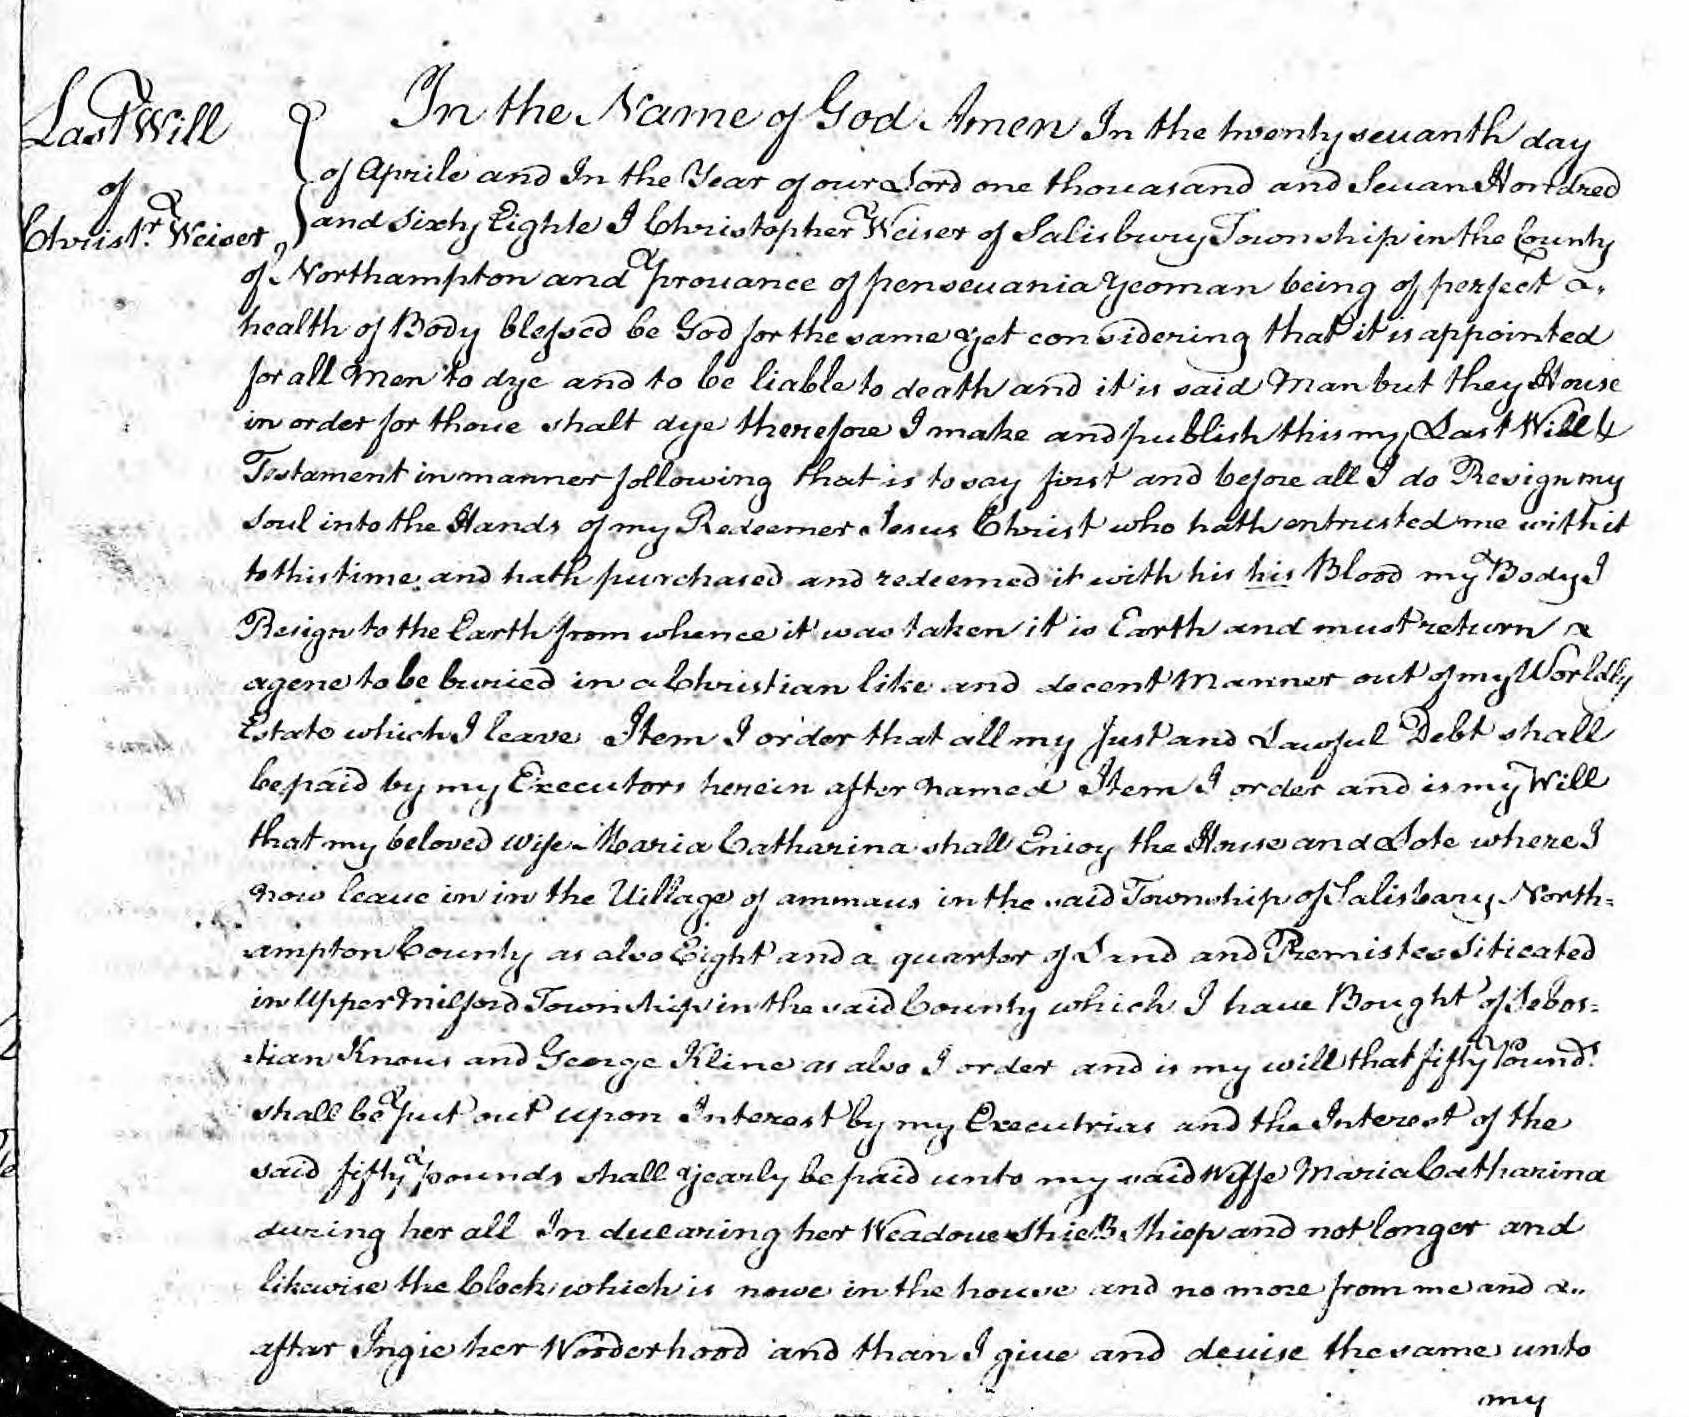 Last Will
of
Christr. Weiser
In the Name of God Amen In the twenty seuanth day
of Aprile and In the Year of our Lord one thouasand and Seuan Hondred
and Sixty Eighte I Christopher Weiser of Salisbury Township in the County
of Northampton and prouance of penseuania Yeoman being of perfect &..
health of Body blessed be God for the same yet considering that it is appointed
for all Men to dye and to be liable to death and it is said Man but they House
in order for thoue shalt dye therefore I make and publish this my Last Will &
Testament in manner following that is to say first and before all I do Resign my
Soul into the Hands of my Redeemer Jesus Christ who hath entrusted me with it
to this time and hath purchased and redeemed it with his his Blood my Body I
Resign to the Earth from whence it was taken it is Earth and must return &
agene to be buried in a Christian like and decent Manner out of my Worldly
Estate which I leave Item I order that all my Just and Lawful Debt shall
be paid by my Executors herein after named Item I order and is my Will
that my beloved wife Maria Catharina shall Enioy the House and Lote where I
now leaue in in the Uillage of ammaus in the said Township of Salisbary North=
ampton County as also Eight and a quarter of Land and Premistes Siticated
in Upper Milford Township in the said County which I have Bought of Sebas=
tian Knous and George Kline as also I order and is my will that fifty Pounds
shall be put out upon Interest by my Executrias and the Interest of the
said fifty pounds shall yearly be paid unto my said Wiffe Maria Catharina
during her all In duearing her Weadoue Shie B Shiep and not longer and
likewise the Clock which is nowe in the house and no more from me and &..
aftar Ingie her Wooderhood and than I giue and deuise the same unto
my